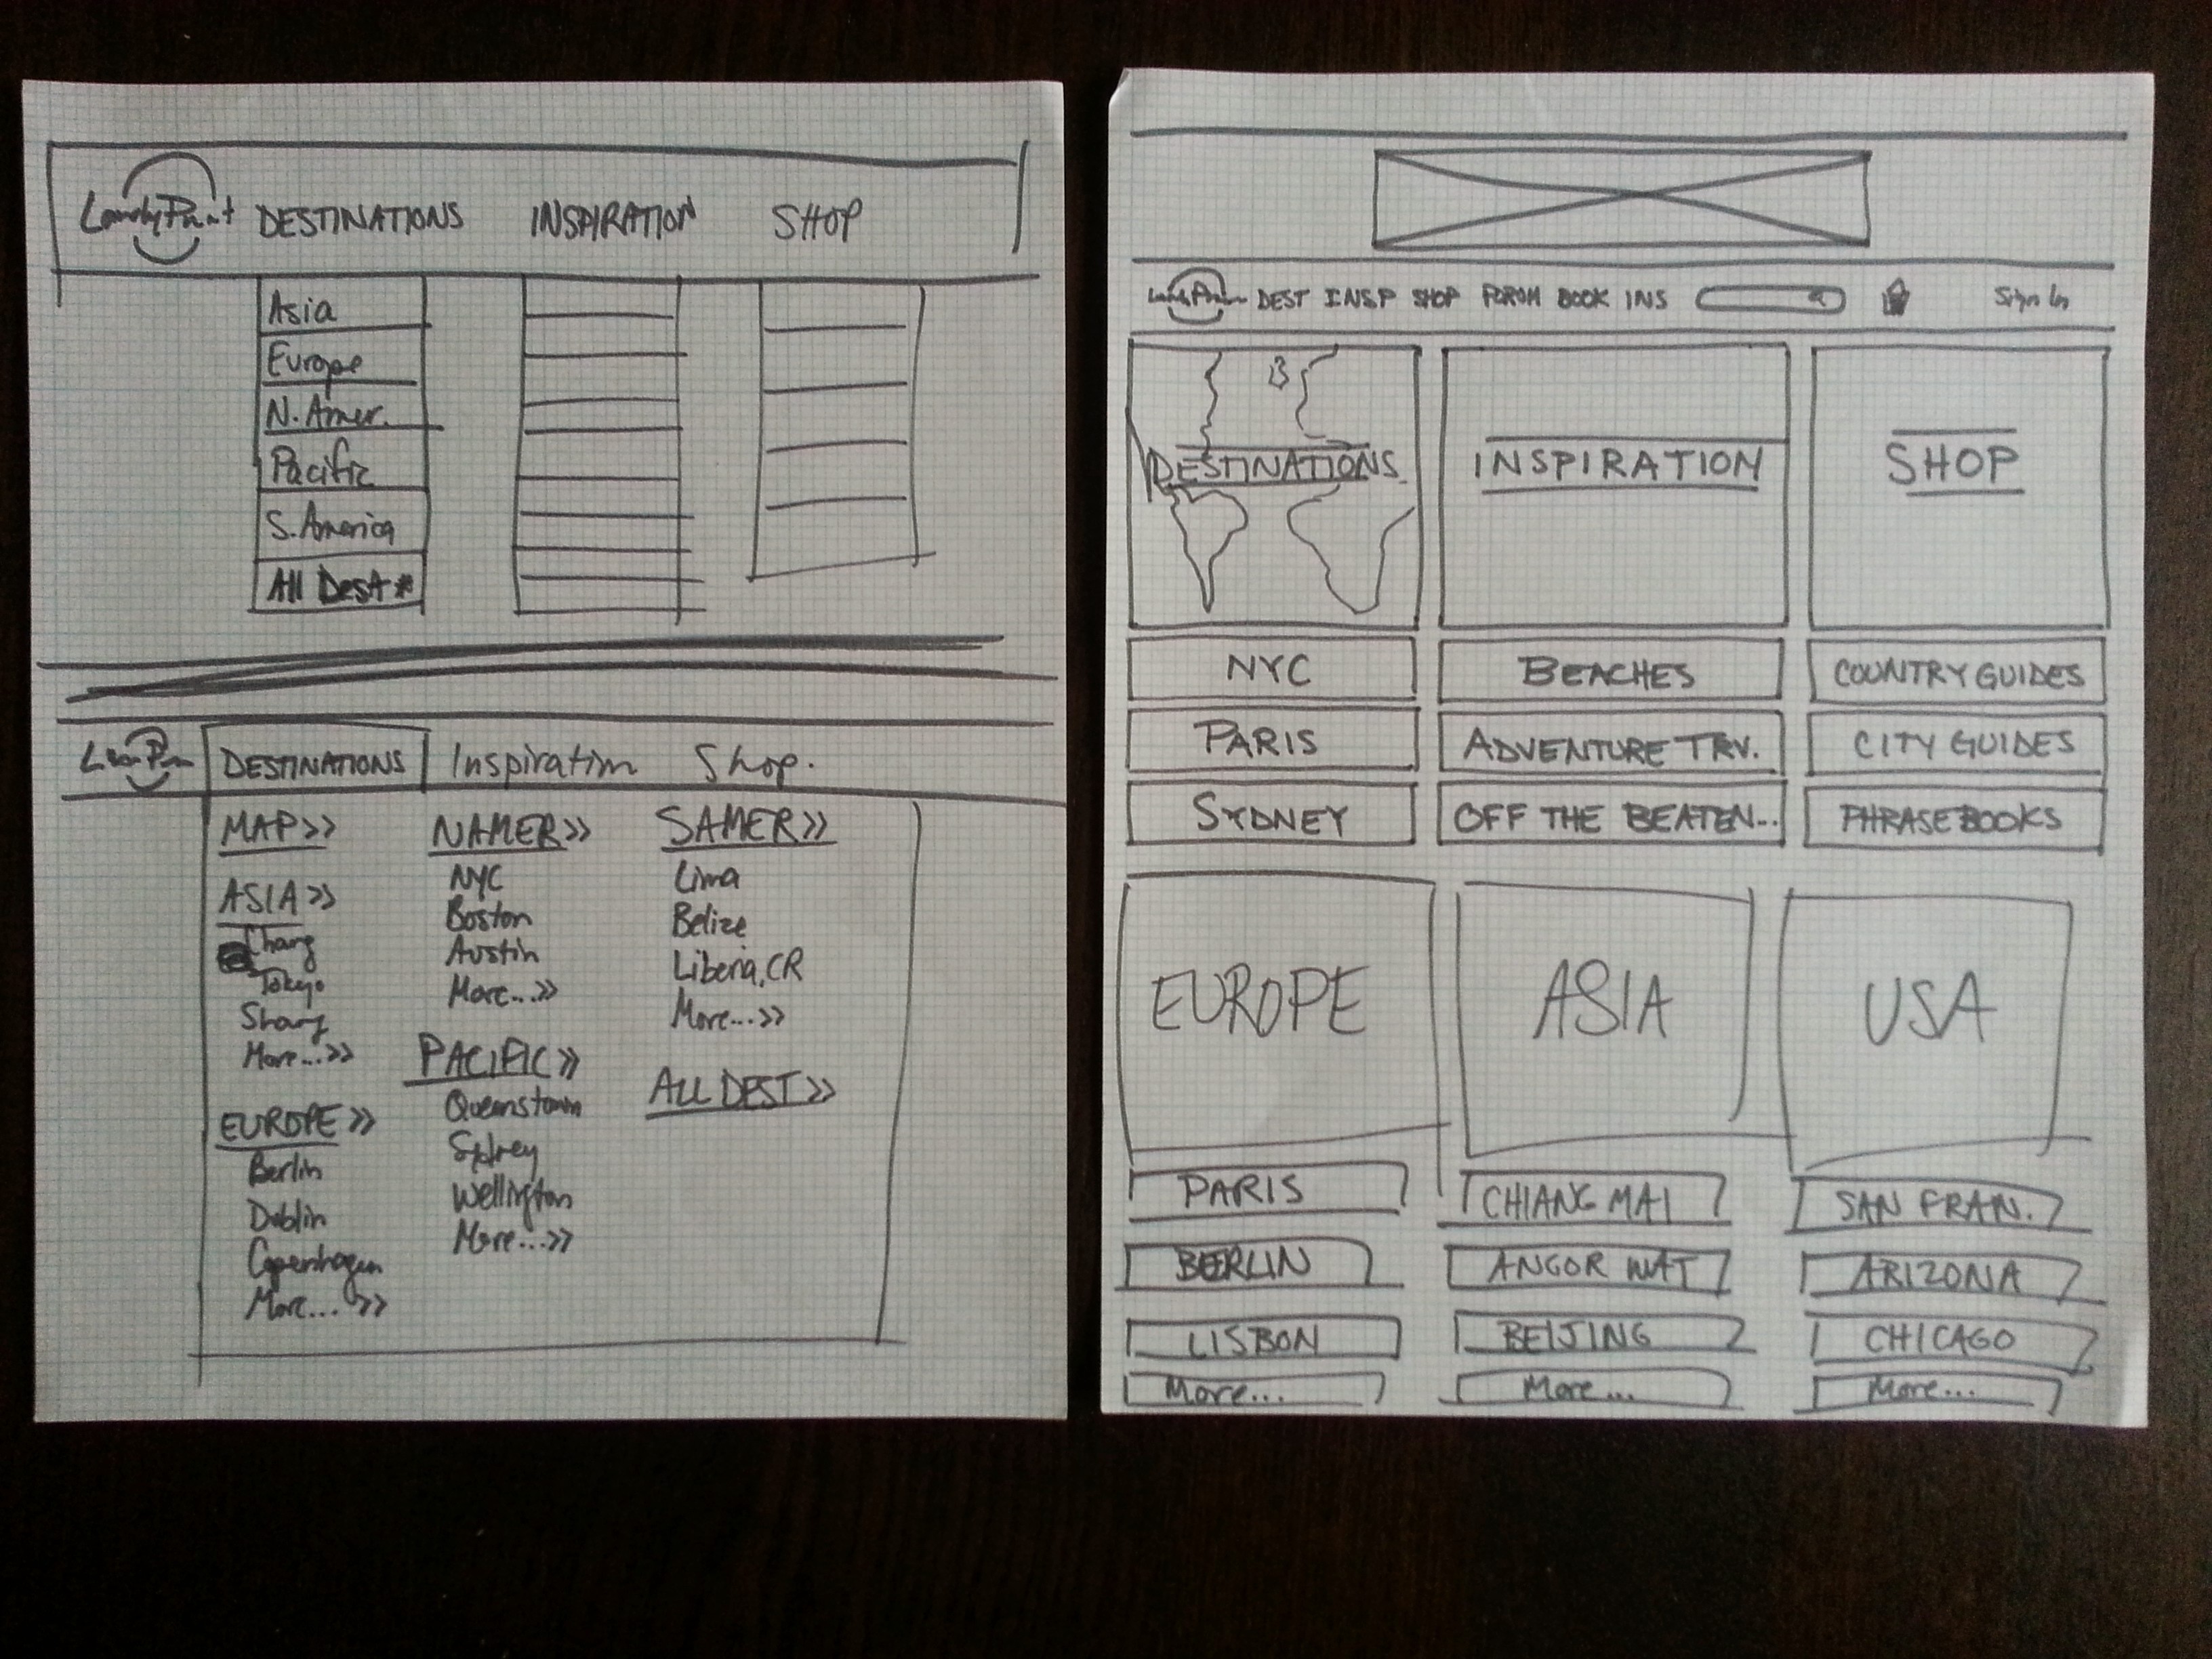 DESTINATIONS INSPIRATION SHOP
Asia
Europe
N. Amer.
Pacific
S. America
All Dest *
DESTINATIONS Inspiration Shop.
MAP>>
ASIA>>
Chang
Tokyo
Shang
More...>>
EUROPE>>
Berlin
Dublin
Copenhagen
More...>>
NAMER>>
NYC
Boston
Austin
More...>>
PACIFIC>>
Queenstown
Sydney
Wellington
More...>>
SAMER>>
Lima
Belize
Liberia, CR
More...>>
ALL DEST>>
DEST INSP SHOP FORUM BOOK INS Sign In
DESTINATIONS INSPIRATION SHOP
NYC BEACHES COUNTRY GUIDES
PARIS ADVENTURE TRV. CITY GUIDES
SYDNEY OFF THE BEATEN... PHRASEBOOKS
EUROPE ASIA USA
PARIS CHIANG MAI SAN FRAN.
BERLIN ANGOR WAT ARIZONA
LISBON BEIJING CHICAGO
More... More... More...